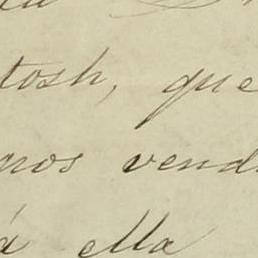 tosh, que
nos vend
á ella